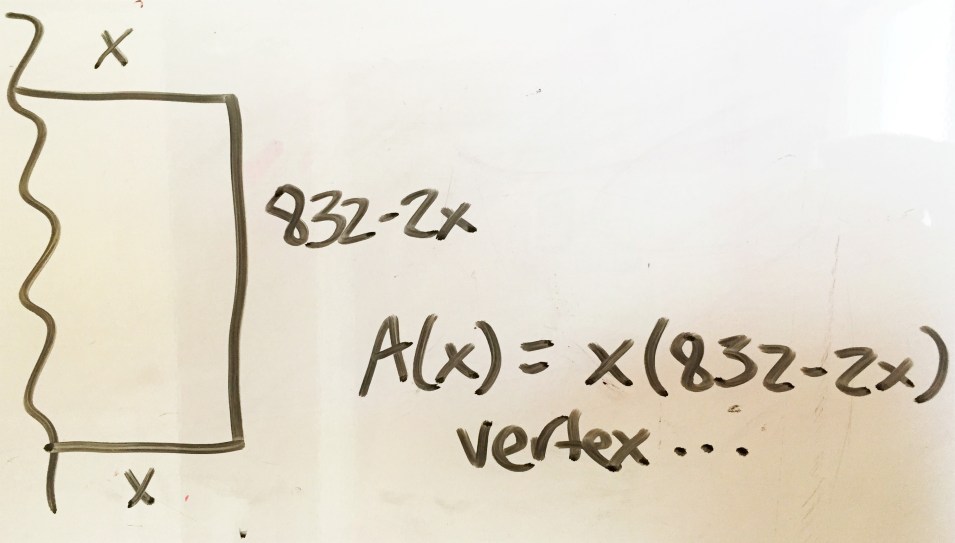 x
832-2x
A(x) = x(832-2x)
vertex...
x